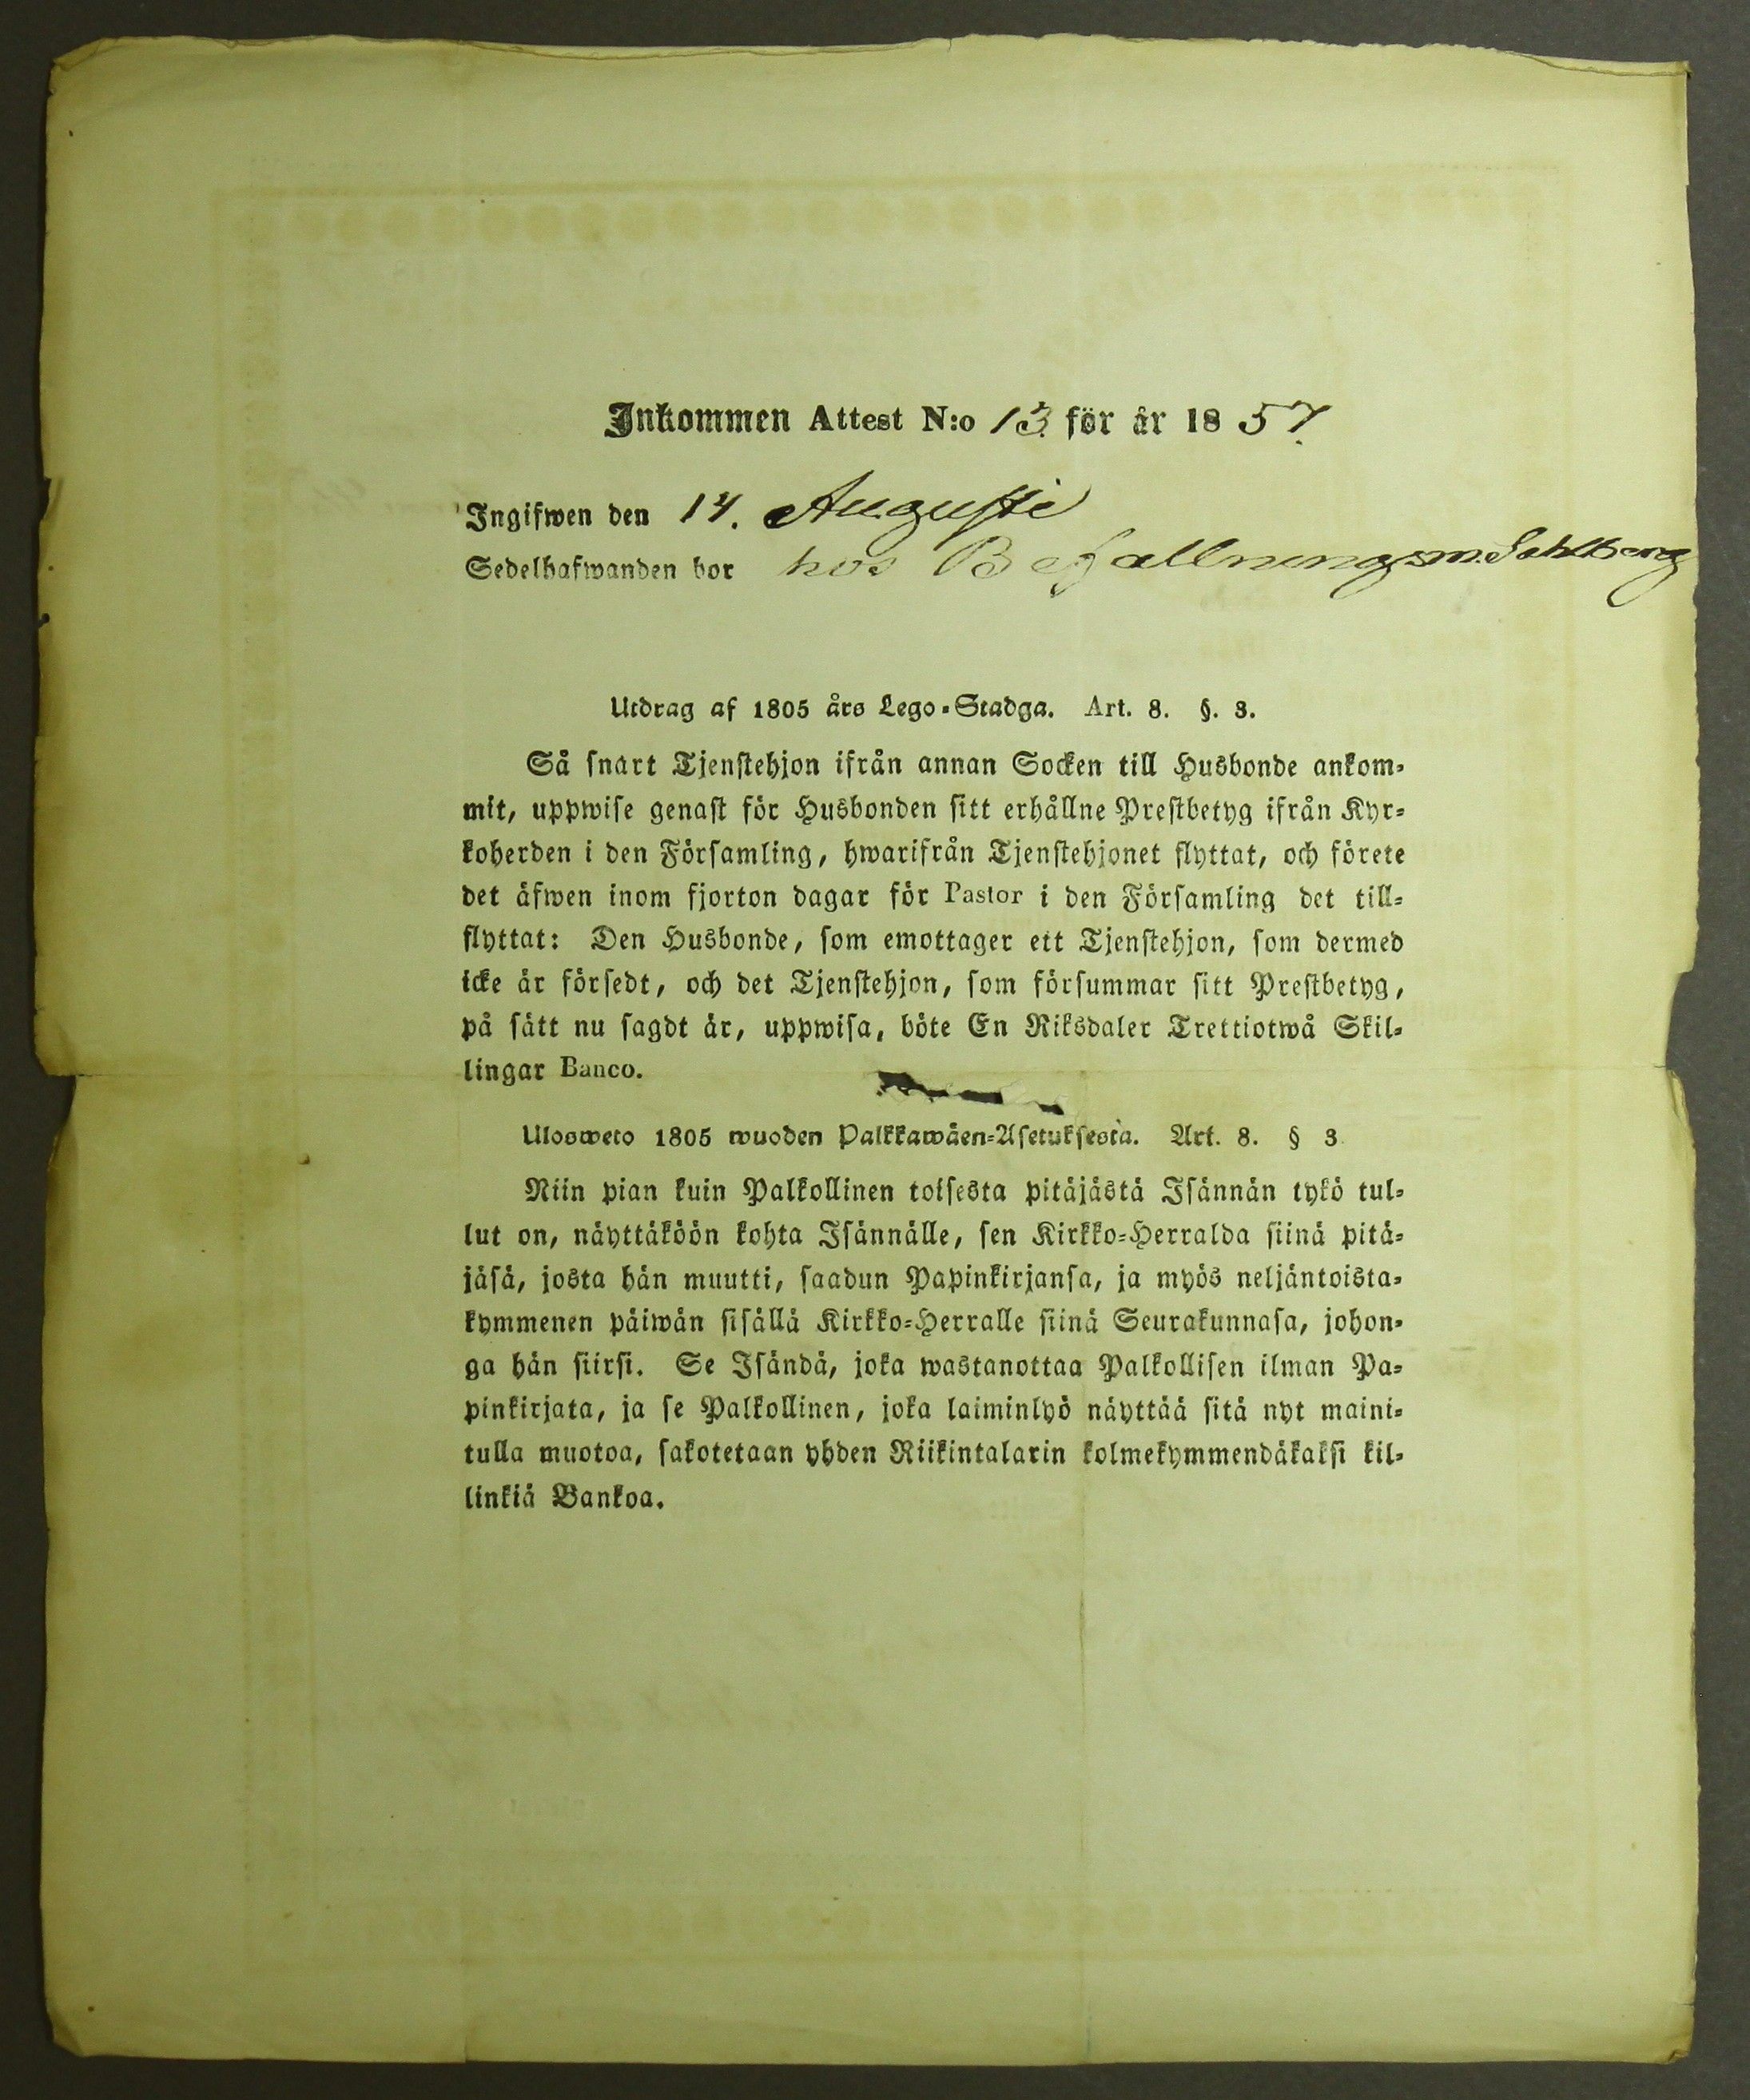 Inkommen Attest N:o 13 för år 1857.
Ingifwen den 14. Augusti
Sedelhafwanden bor hos Befallningsm. Sahlberg
Utdrag af 1805 års Lego-Stadga. Art. 8. §. 3.
Så snart Tjenstehjon ifrån annan Socken till Husbonde ankom-
mit, uppwise genast för Husbonden sitt erhållne Prestbetyg ifrån Kyr-
koherden i den Församling, hwarifrån Tjenstehjonet flyttat, och förete
det äfwen inom fjorton dagar för Pastor i den Församling det till-
flyttat: Den Husbonde, som emottager ett Tjenstehjon, som dermed
icke är försedt, och det Tjenstehjon, som försummar sitt Prestbetyg,
på sätt nu sagdt är, uppwisa, böte En Riksdaler Trettiotwå Skil-
lingar Banco.
Ulosweto 1805 wuoden Palkkawäen-Asetuksesta. Art. 8. § 3
Niin pian kuin Palkollinen toisesta pitäjästä Isännän tykö tul-
lut on, näyttäköön kohta Isännälle, sen Kirkko-Herralda siinä pitä-
jäsä, josta hän muutti, saadun Papinkirjansa, ja myös neljäntoista-
kymmenen päiwän sisällä Kirkko-Herralle siinä Seurakunnasa, johon-
ga hän siirsi. Se Isändä, joka wastanottaa Palkollisen ilman Pa-
pinkirjata, ja se Palkollinen, joka laiminlyö näyttää sitä nyt maini-
tulla muotoa, sakotetaan yhden Riikintalarin kolmekymmendäkaksi kil-
linkiä Bankoa.